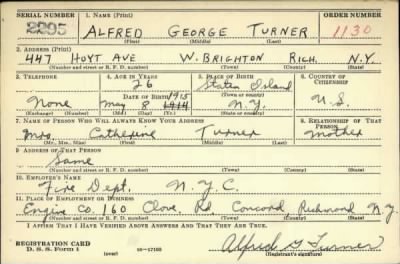 SERIAL NUMBER 1. NAME (Print) ORDER NUMBER
2295 ALFRED GEORGE TURNER 1130
(First) (Middle) (Last)
2. ADDRESS (Print)
447 HOYT AVE W. BRIGHTON RICH. N.Y.
(Number and street or R. F. D. number) (Town) (County) (State)
3. TELEPHONE 4. AGE IN YEARS 5. PLACE OF BIRTH 6. COUNTRY OF CITIZENSHIP
26 Staten Island
DATE OF BIRTH 1915 (Town or county)
None May 8 1914 N.Y. U.S.
(Exchange) (Number) (Mo.) (Day) (Yr.) (State or country)
7. NAME OF PERSON WHO WILL ALWAYS KNOW YOUR ADDRESS 8. RELATIONSHIP OF THAT PERSON
Mrs. Catherine Turner Mother
(Mr., Mrs., Miss) (First) (Middle) (Last)
9. ADDRESS OF THAT PERSON
Same
(Number and street or R. F. D. number) (Town) (County) (State)
10. EMPLOYER'S NAME
Fire Dept. N.Y.C.
11. PLACE OF EMPLOYMENT OR BUSINESS
Engine Co. 160 Clove Rd. Concord Richmond N.Y.
(Number and street or R. F. D. number) (Town) (County) (State)
I AFFIRM THAT I HAVE VERIFIED ABOVE ANSWERS AND THAT THEY ARE TRUE.
REGISTRATION CARD
D. S. S. Form 1 (over) 16—17105 Alfred G Turner
(Registrant's signature)